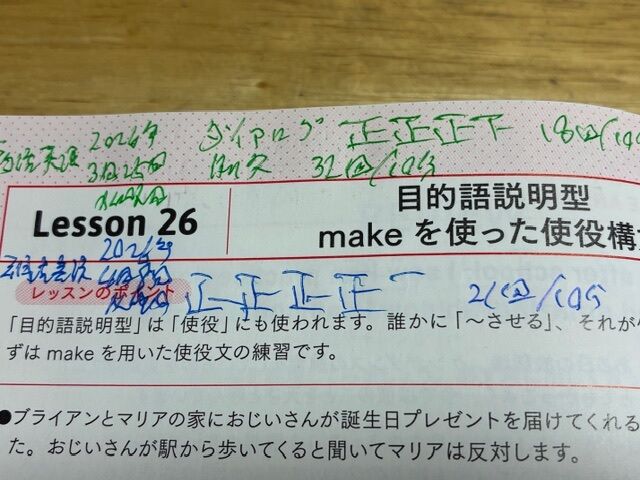 2026年 ダイアログ 正正正下 18回/10分
3月25日 例文 32回/10分
水曜日
Lesson 26
目的語説明型
make を使った使役構
2026年
正正正正一 21回/10分
レッスンのポイント
「目的語説明型」は「使役」にも使われます。誰かに「～させる」、それが
ずは make を用いた使役文の練習です。
●ブライアンとマリアの家におじいさんが誕生日プレゼントを届けてくれる
た。おじいさんが駅から歩いてくると聞いてマリアは反対します。